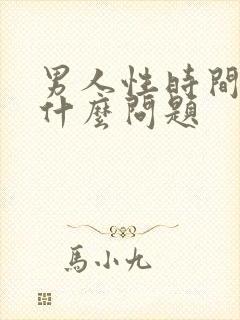 男人性時間
什麼問題
馬小九